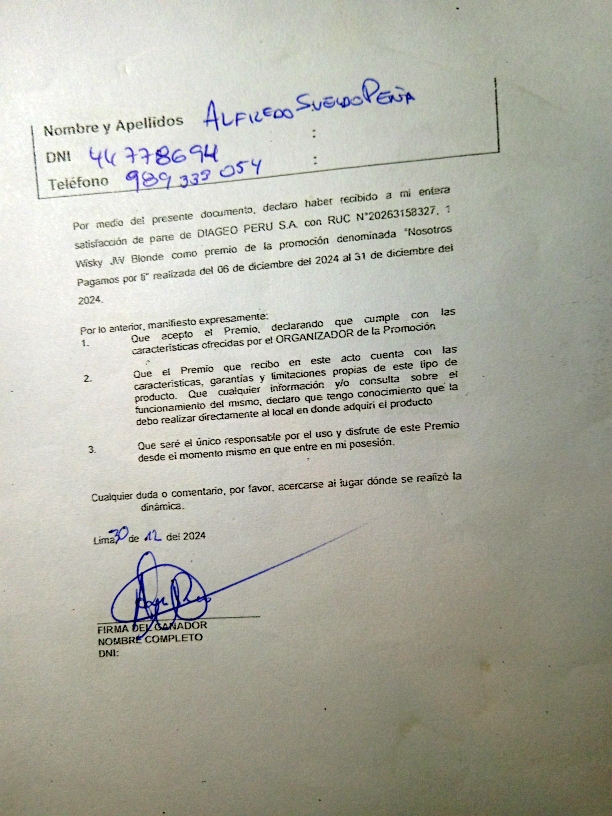 Nombre y Apellidos ALFREDO SUELDO PEÑA
:
DNI 44778694
:
Teléfono 989 333 054
Por medio del presente documento, declaro haber recibido a mi entera
satisfacción de parte de DIAGEO PERU S.A. con RUC N°20263158327, 1
Wisky JW Blonde como premio de la promoción denominada "Nosotros
Pagamos por ti" realizada del 06 de diciembre del 2024 al 31 de diciembre del
2024.
Por lo anterior, manifiesto expresamente:
1. Que acepto el Premio, declarando que cumple con las
características ofrecidas por el ORGANIZADOR de la Promoción
2. Que el Premio que recibo en este acto cuenta con las
características, garantías y limitaciones propias de este tipo de
producto. Que cualquier información y/o consulta sobre el
funcionamiento del mismo, declaro que tengo conocimiento que la
debo realizar directamente al local en donde adquirí el producto
3. Que seré el único responsable por el uso y disfrute de este Premio
desde el momento mismo en que entre en mi posesión.
Cualquier duda o comentario, por favor, acercarse al lugar dónde se realizó la
dinámica.
Lima, 30 de 12 del 2024
FIRMA DEL GANADOR
NOMBRE COMPLETO
DNI: